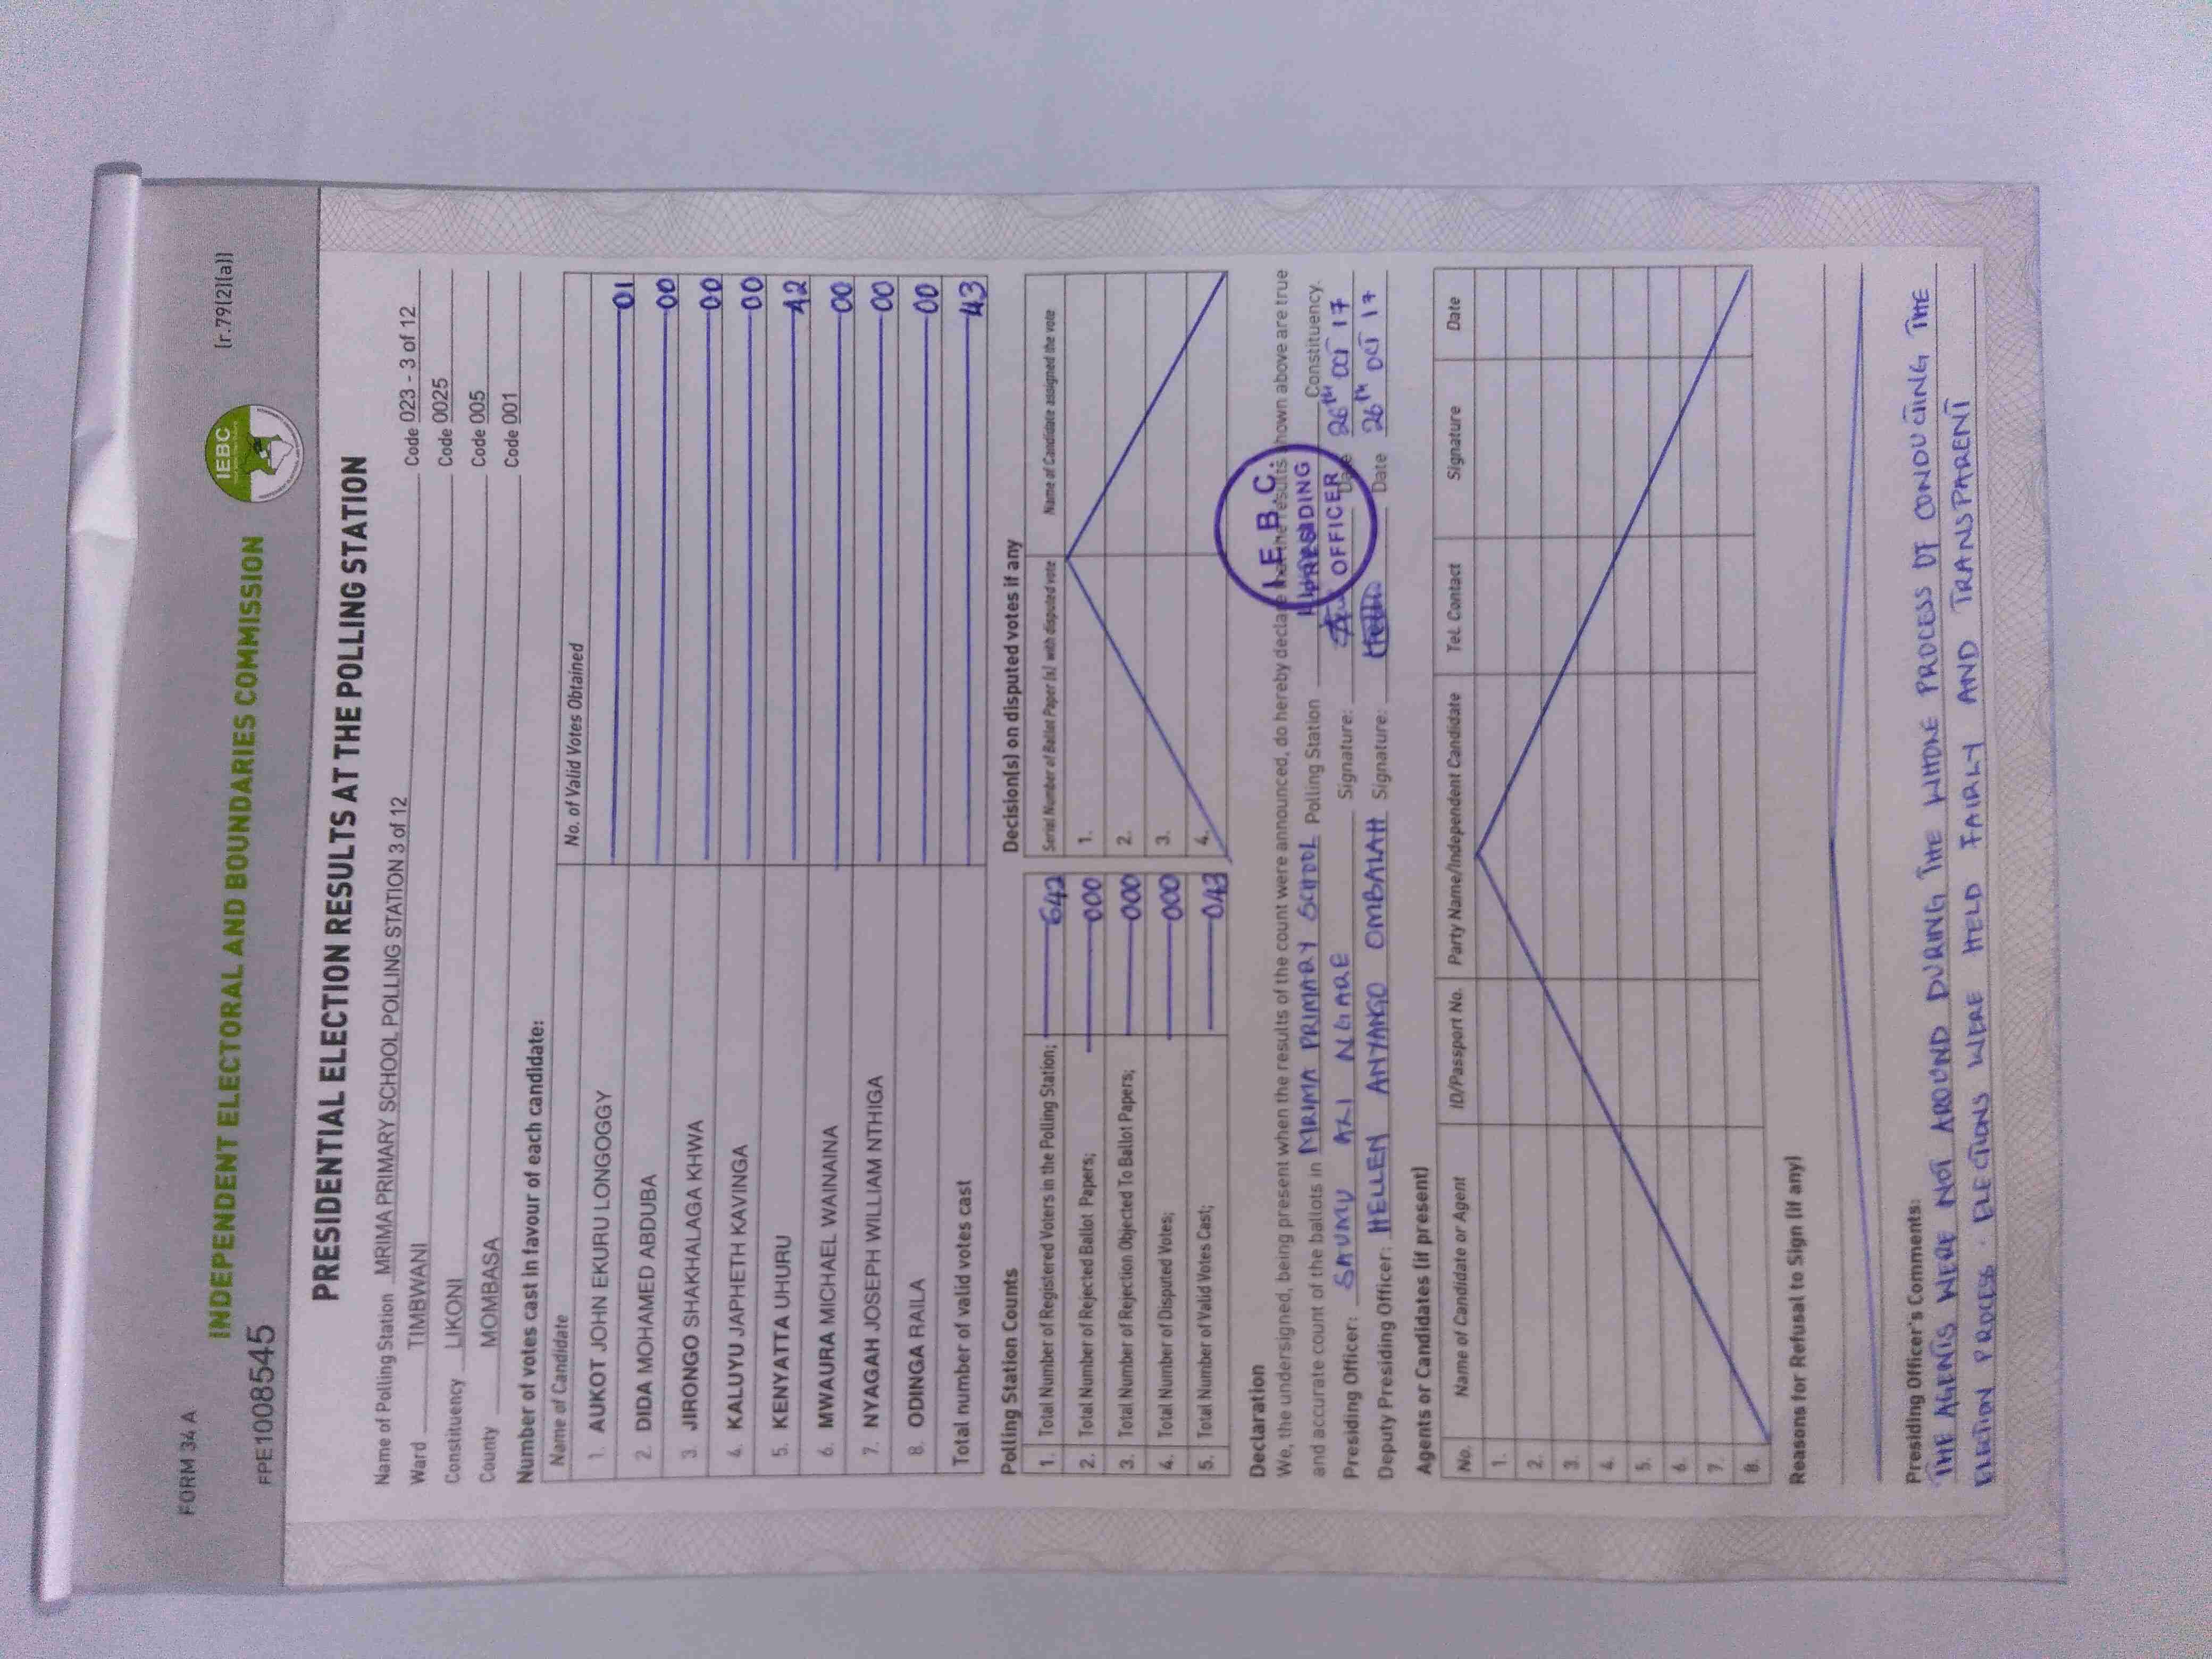 FORM 34 A
IEBC
[r.79(2)(a)]
INDEPENDENT ELECTORAL AND BOUNDARIES COMMISSION
FPE1008545
PRESIDENTIAL ELECTION RESULTS AT THE POLLING STATION
Name of Polling Station MRIMA PRIMARY SCHOOL POLLING STATION 3 of 12 Code 023 - 3 of 12
Ward TIMBWANI Code 0025
Constituency LIKONI Code 005
County MOMBASA Code 001
Number of votes cast in favour of each candidate:
Name of Candidate No. of Valid Votes Obtained
1. AUKOT JOHN EKURU LONGOGGY 01
2. DIDA MOHAMED ABDUBA 00
3. JIRONGO SHAKHALAGA KHWA 00
4. KALUYU JAPHETH KAVINGA 00
5. KENYATTA UHURU 42
6. MWAURA MICHAEL WAINAINA 00
7. NYAGAH JOSEPH WILLIAM NTHIGA 00
8. ODINGA RAILA 00
Total number of valid votes cast 43
Polling Station Counts
1. Total Number of Registered Voters in the Polling Station; 642
2. Total Number of Rejected Ballot Papers; 000
3. Total Number of Rejection Objected To Ballot Papers; 000
4. Total Number of Disputed Votes; 000
5. Total Number of Valid Votes Cast; 043
Decision(s) on disputed votes if any
Serial Number of Ballot Paper (s) with disputed vote Name of Candidate assigned the vote
1.
2.
3.
4.
Declaration
We, the undersigned, being present when the results of the count were announced, do hereby declare that the results shown above are true
and accurate count of the ballots in MRIMA PRIMARY SCHOOL Polling Station Constituency.
Presiding Officer: SAUMU ALI NGARE Signature: Date 26th OCT 17
Deputy Presiding Officer: HELLEN ANYANGO OMBALAH Signature: Date 26th OCT 17
I.E.B.C.
PRESIDING
OFFICER
Agents or Candidates (if present)
No. Name of Candidate or Agent ID/Passport No. Party Name/Independent Candidate Tel. Contact Signature Date
1.
2.
3.
4.
5.
6.
7.
8.
Reasons for Refusal to Sign (if any)
Presiding Officer's Comments:
THE AGENTS WERE NOT AROUND DURING THE WHOLE PROCESS OF CONDUCTING THE
ELECTION PROCESS. ELECTIONS WERE HELD FAIRLY AND TRANSPARENT